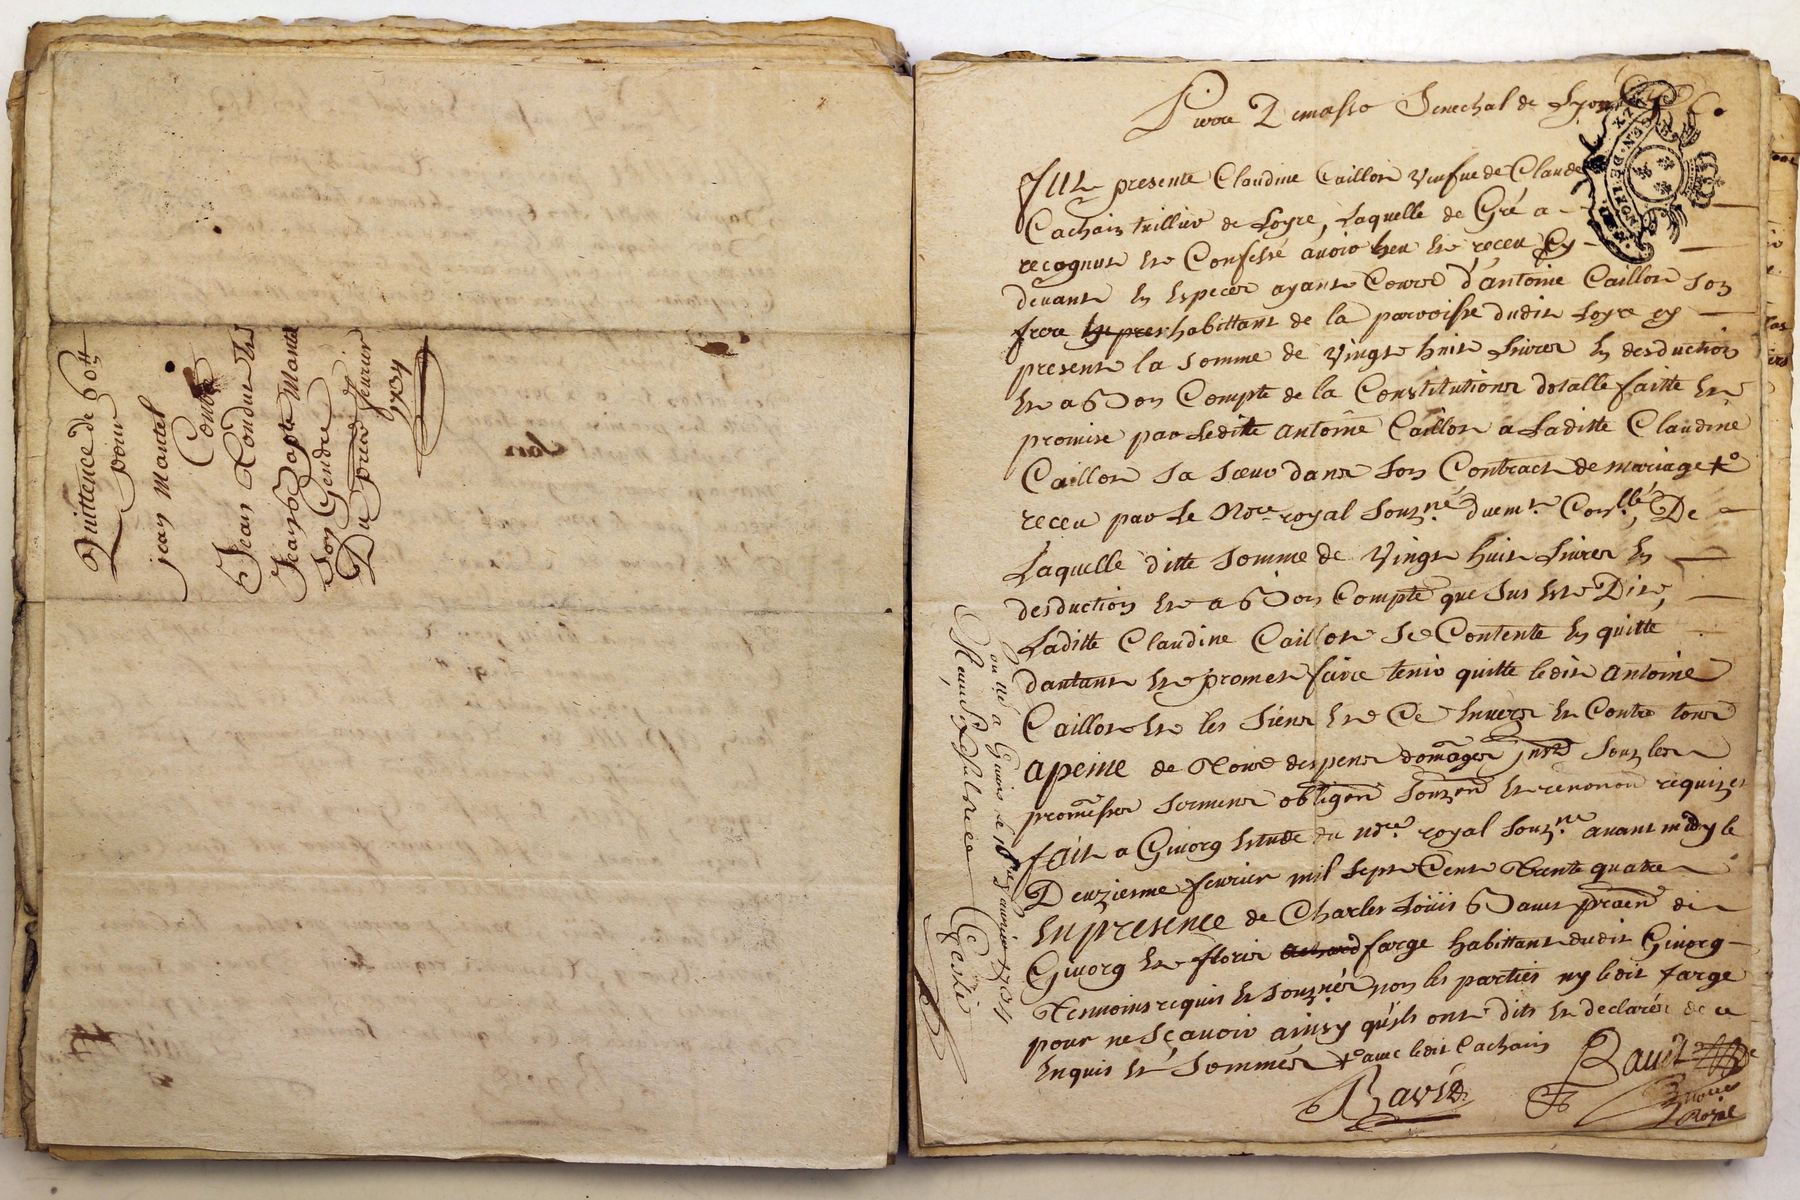 Quittence de 60 tt
pour
jean Mantel
Contre
Jean Condue et
Jean Bapte Mantel
son Gendre
Du premier feurier
1734
Pierre Demasso Senechal de Lyon
GEN. DE LYON
Fut presente Claudine Caillot veufue de Claude
Cachain tuillier de Loyre, Laquelle de Gré a
recognut et Confessé auoir heu et receu Cy
deuant en especes ayant Cours d'antoine Caillot son
frere habittant de la parroisse dudit Loyre cy
present la somme de vingt huit Liures en desduction
et a Bon Compte de la Constitution dotalle faitte et
promise par Leditte antoine Caillot a Laditte Claudine
Caillot sa soeur dans son Contract de mariage +o
receu par Le Nore royal souzné duemt Conllé, De
Laquelle ditte somme de vingt huit Liures en
desduction et a Bon Compte que sus est Dit,
Laditte Claudine Caillot se Contente en quitte
dautant et promet faire tenir quitte ledit antoine
Caillot et les siens et Ce enuers et Contre tous
apeine de tous despens domages sous les
promesses serment obligon souzon et renonon requizes
fait a Giuorg estude du nore royal souzné auant midy le
Deuzieme feurier mil sept Cent trente quatre
en presence de Charles Loüis Bauet praen de
Giuorg et florir farge habittant dudit Giuorg
tesmoins requis et souznés non les parties ny ledit farge
pour ne sçauoir ainsy qu'ils ont dits et declarés de ce
enquis et sommés +o auec ledit Cachain
Bauet
Nore
Royal
Conllé a Giuors le 1734